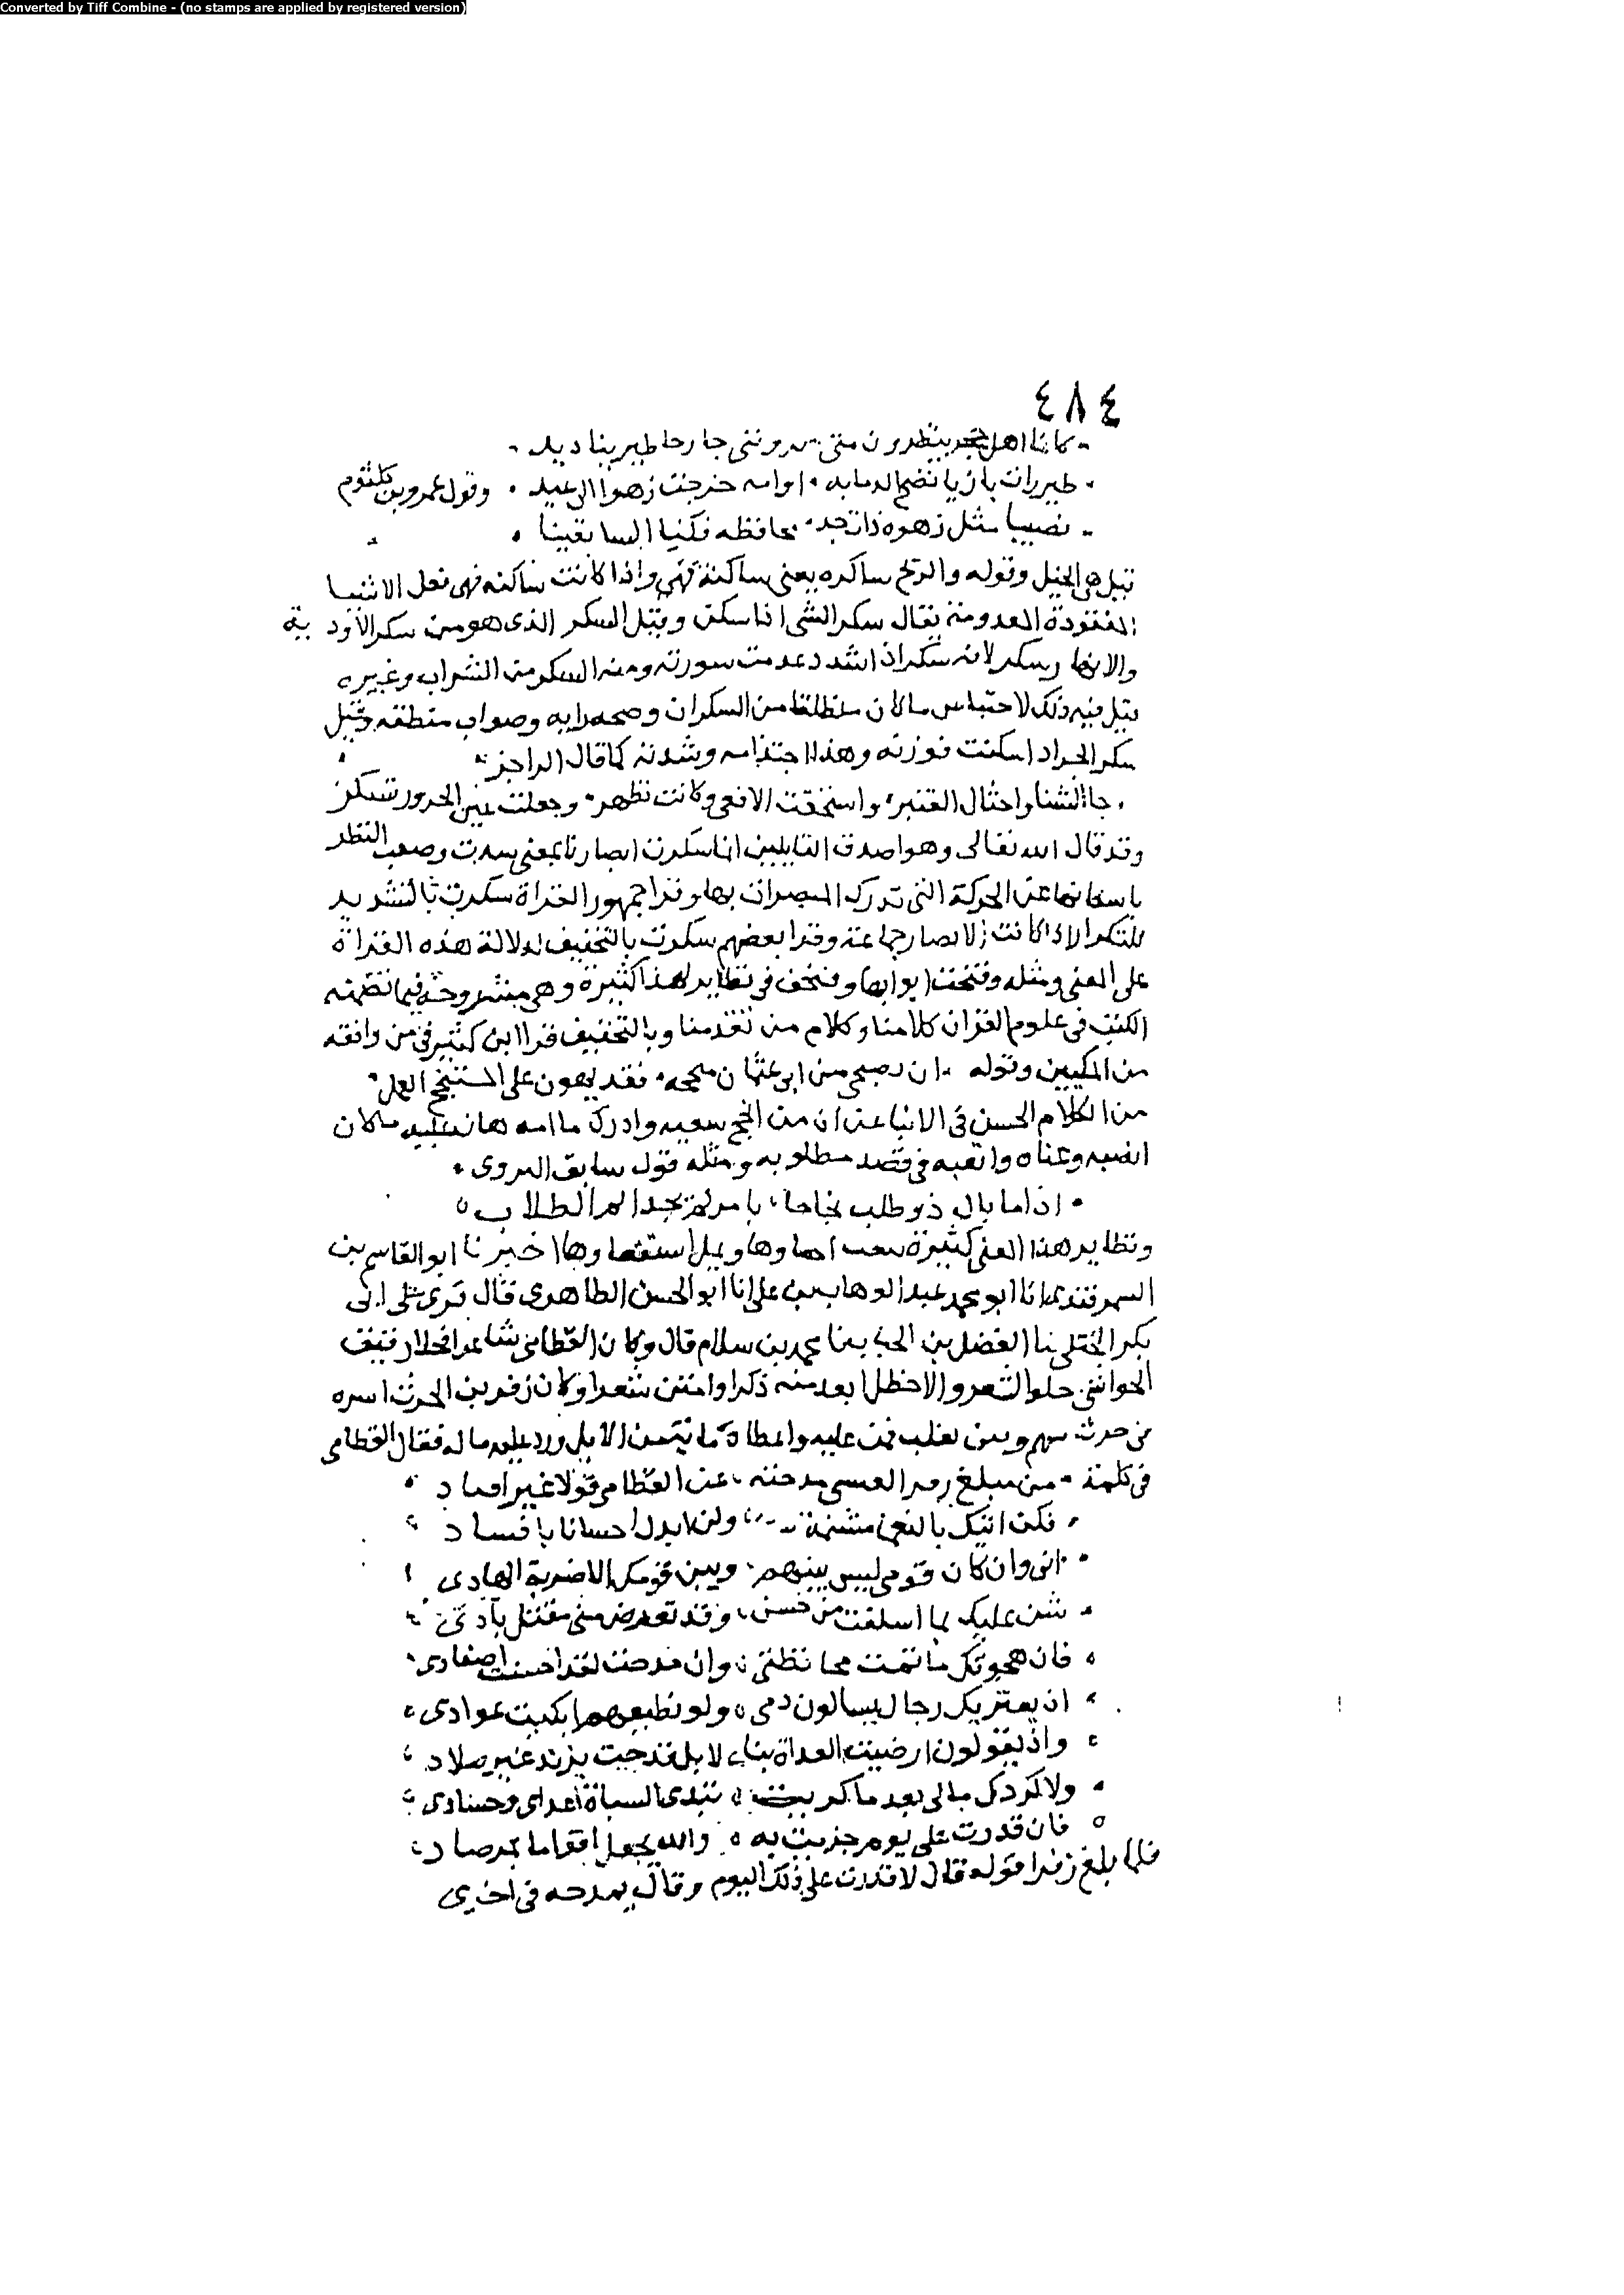 Converted by Tiff Combine - (no stamps are applied by registered version)
٤٨٤
كانما اهل ينظرون متى يروننى جارحا طير يناديد
طير رات بازيا نضح الدما به او امه خرجت زهوا الى عيد وقول عمرو بن كلثوم
نصبنا مثل زهوه ذات حد محافظه وكنا السابقينا
قيل هى الخيل وقوله والريح ساكره يعنى ساكنة فهى واذا كانت ساكنه فهى
المفقودة المعدومة يقال سكر الشى اذا سكن وقيل السكر الذى هو من سكر الاودية
والانهار وسكر لانه سكر اذا شد وعدمت سورته ومنه السكر من الشراب وغيره
قيل فيه ذلك لاحتباس ما كان منطلقا من السكران وصحه رايه وصواب منطقه وقيل
سكر الحر اذا سكنت فورته وهذا وشدته كما قال الراجز
جا الشتا واجثال القنبر واستخفت الافعى وكانت تظهر وجعلت عين الحرور تسكر
وقد قال الله تعالى وهو اصدق القايلين انما سكرت ابصارنا بمعنى سدت النظر
عن الحركة التى تدرك المبصرات بها وقرا جمهور القراة سكرت بالتشديد
للتكرار اذ كانت الابصار جماعة وقرا بعضهم سكرت بالتخفيف لدلالة هذه القراة
على المعنى ومثله وفتحت ابوابها وفتحت فى نظاير لهذا كثيرة وهى مشروحة فيما تضمنه
الكتب فى علوم القران كلامنا وكلام من تقدمنا وبالتخفيف قرا ابن كثير فى من وافقه
من المكيين وقوله ان رجع من ابى عثمان منجحه فقد يهون على المستنجح العمل
من الكلام الحسن فى الانبا عن ان من انجح سعيه وادرك ما امه هان عليه ما كان
انصبه وعناه واتعبه فى قصد مطلوبه ومثله قول سابق البروى
اذا ما نال ذو طلب نجاحا بامر لم يجد الم الطلاب
ونظاير هذا المعنى كثيرة احصاوها استقصاوها اخبرنا ابو القاسم بن
السمرقندى انا ابو محمد عبد الوهاب بن على انا ابو الحسن الطاهرى قال قرى على ابى
بكر الختلى نا الفضل بن الحباب نا محمد بن سلام قال وكان القطامى شاعرا فحلا رقيق
الحواشى حلو الشعر والاخطل ابعد منه ذكرا وامتن شعرا وكان زفر بن الحرث اسره
فى حرب بينهم وبين تغلب فمن عليه واعطاه مائة من الابل ورد عليه ماله فقال القطامى
فى كلمته من مبلغ زفر القيسى مدحته عن القطامى قولا غير افناد
فلن اثيبك بالنعمى مشتمة ولن ابدل احسانا بافساد
انى وان كان قومى ليس بينهم وبين قومك الا ضربة الهادى
مثن عليك بما اسلفت من حسن وقد تعرض منى مقتل بادى
فان هجوتك ما تمت محافظتى وان مدحت لقد احسنت اصفادى
اذ يعتريك رجال يسالون دمى ولو تطيعهم ابكيت عوادى
واذ يقولون ارضيت العداة بنا لا بل قدحت بزند غير صلاد
ولا كردك مالى بعد ما كربت تبدى الشماتة اعداى وحسادى
فان قدرت على يوم جزيت به والله يجعل اقواما بمرصاد
فلما بلغ زفرا قوله قال لا قدرت على ذلك اليوم وقال يمدحه فى اخرى